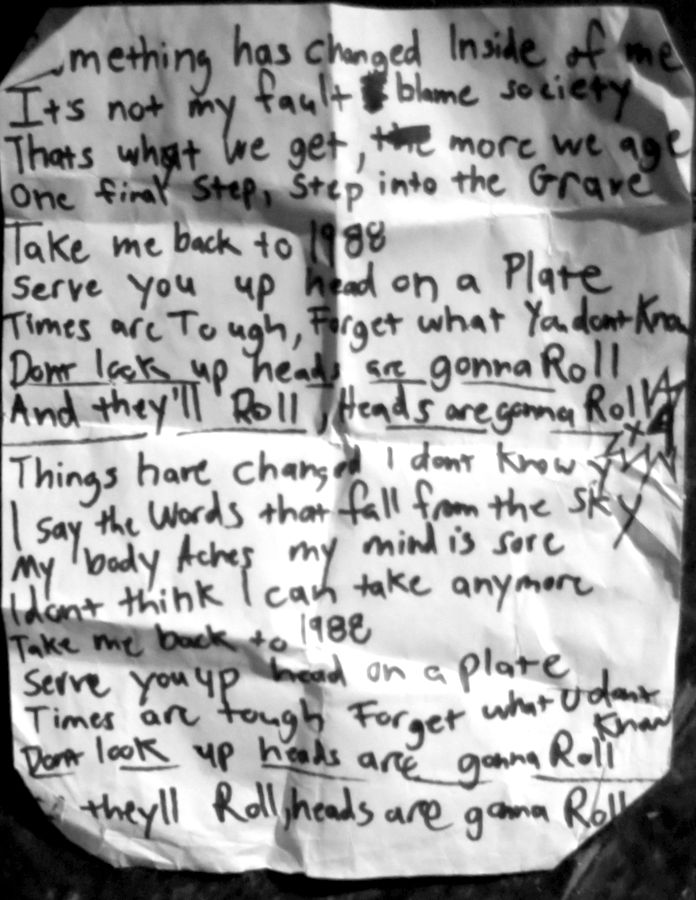 mething has changed Inside of me
Its not my fault blame society
Thats what we get, the more we age
One final Step, Step into the Grave
Take me back to 1988
Serve you up head on a Plate
Times are Tough, Forget what Ya dont Know
Dont look up heads are gonna Roll
And they'll Roll, Heads are gonna Roll
x4
Things have changed I dont know why
I say the Words that fall from the sky
My body Aches my mind is sore
I dont think I can take anymore
Take me back to 1988
Serve you up head on a plate
Times are tough Forget what U dont
Know
Dont look up heads are gonna Roll
they'll Roll, heads are gonna Roll